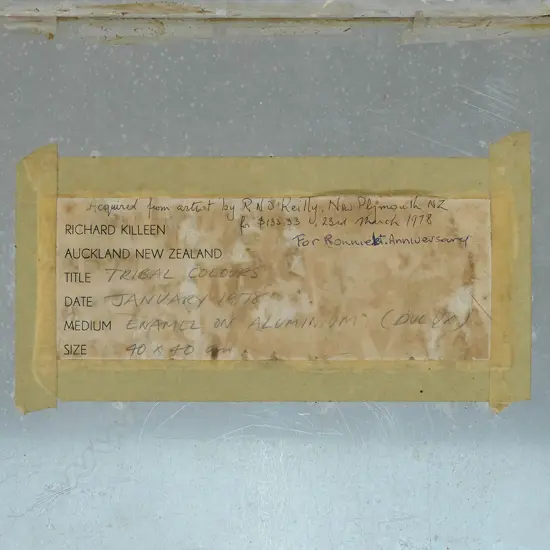 Acquired from artist by R N O'Reilly, New Plymouth NZ
for $133.33 23rd March 1978
RICHARD KILLEEN
For Bonnie Anniversary
AUCKLAND NEW ZEALAND
TITLE TRIBAL COLOURS
DATE JANUARY 1978
MEDIUM ENAMEL ON ALUMINIUM (DULUX)
SIZE 40 X 40 cm